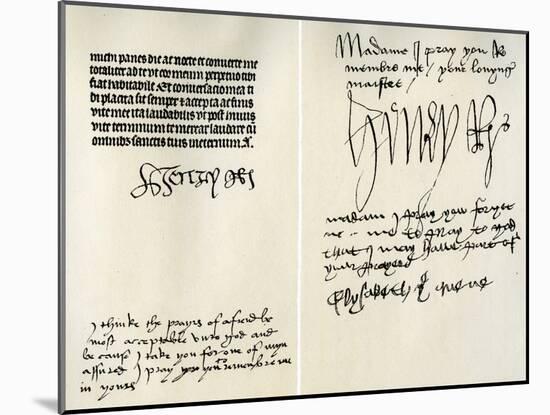 michi panes die ac nocte et convertе me
totaliter ad te vt cor meum perpetuo tibi
fiat habitabile. Et conversacio mea ti
di placita sit semper & accepta ac finis
vite mee ita laudabilis vt post huius
vite terminum te merear laudare cū
omnibus sanctis tuis in eternum A.
I thinke the prayrs of a frend be
most acceptable vnto god and
be caus I take you for one of myn
assured I pray you remembre me
in yours
Madame I pray you Re
membre me / your lovyng
maister /
Henry Rx
madam I pray you forget
me not to pray to god
that I may have part of
your prayers
Elysabeth ye quene